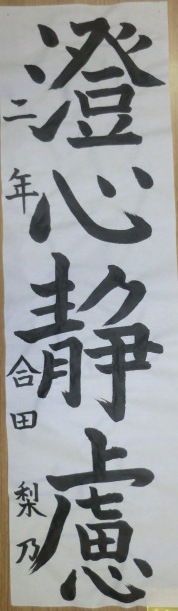 澄心静慮
二年 合田 梨乃